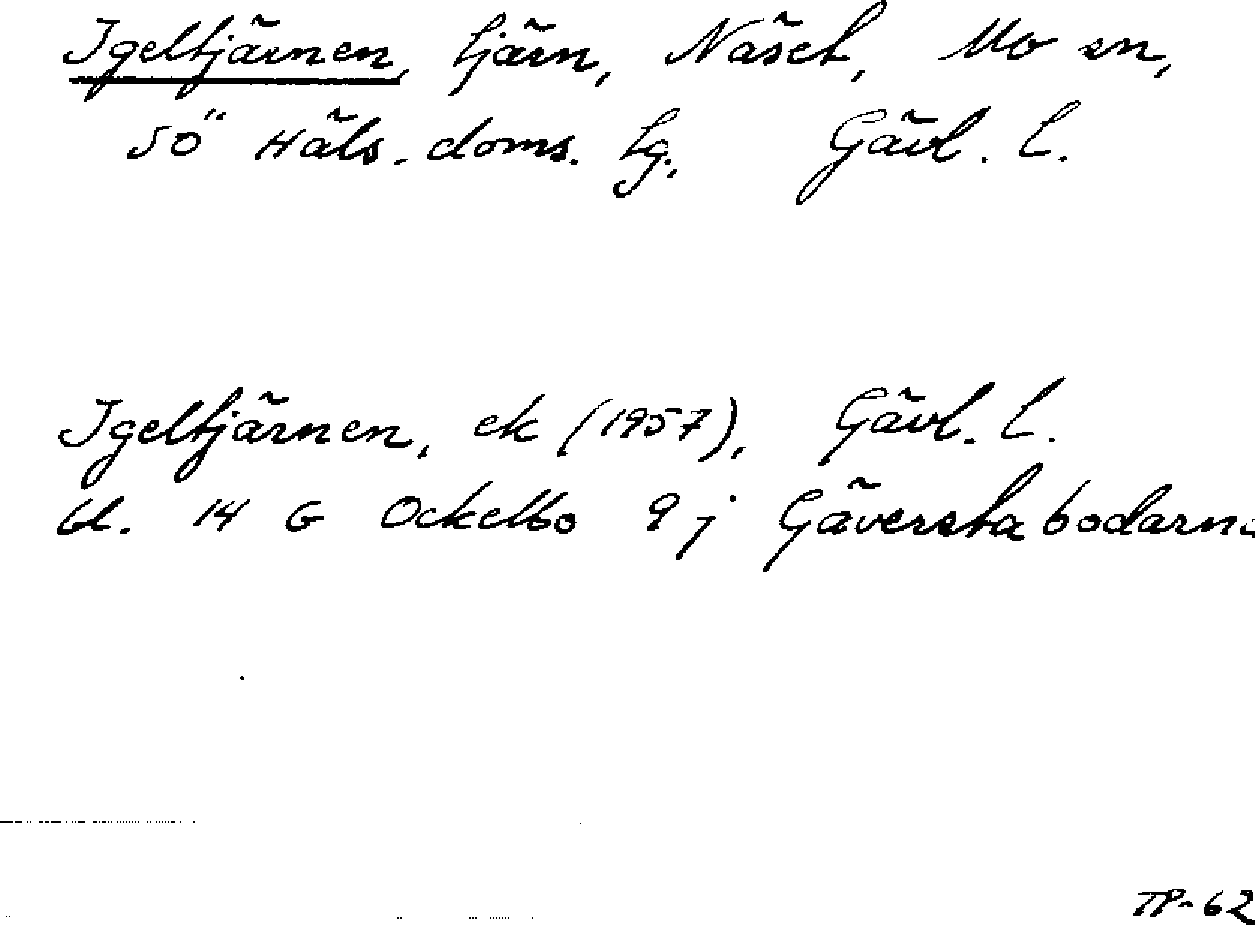 Igeltjärnen, tjärn, Näset, Mo sn,
SÖ Häls. doms. tg. Gävl. l.
Igeltjärnen, ek (1957), Gävl. l.
bl. 14 G Ockelbo 9 j Gäverstabodarna
TP-62